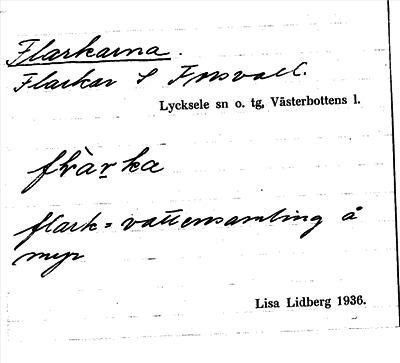 Flarkarna.
Flarkar S Tnsvatt.
Lycksele sn o. tg, Västerbottens l.
flàrka
flark = vattensamling å
myr
Lisa Lidberg 1936.